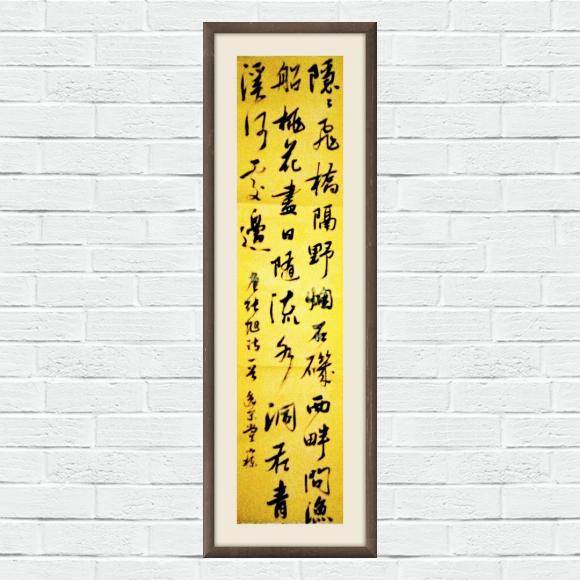 隱〻飛橋隔野烟石磯西畔問漁
船桃花盡日隨流水洞在青
溪何處邊
唐張旭詩一首 堂